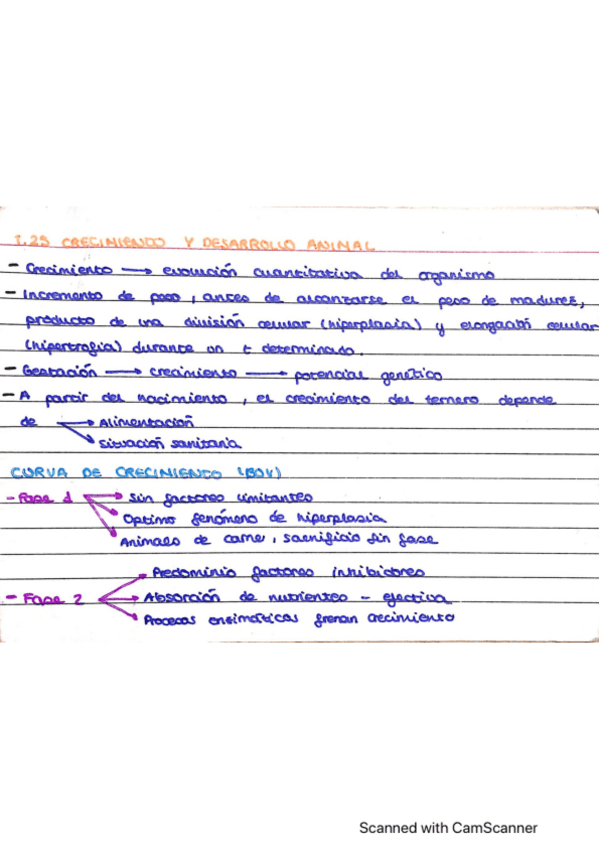 T.25 CRECIMIENDO Y DESARROLLO ANIMAL
- Crecimiento → evolución cuantitativa del organismo
- Incremento de peso, antes de alcanzarse el peso de madurez,
producto de una división celular (hiperplasia) y elongación celular
(hipertrofia) durante un t determinado.
- Gestación → crecimiento → potencial genético
- A partir del nacimiento, el crecimiento del ternero depende
de → Alimentación
→ Situación sanitaria
CURVA DE CRECIMIENDO (BOV)
- Fase 1 → Sin factores limitantes
→ Optimo fenómeno de hiperplasia
→ Animales de carne, sacrificio fin fase
→ Predominio factores inhibidores
- Fase 2 → Absorción de nutrientes - efectiva
→ Procesos enzimáticos frenan crecimiento
Scanned with CamScanner